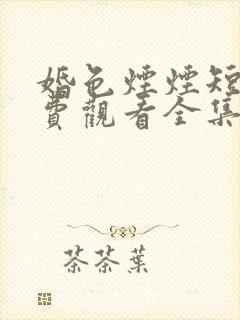 婚色煙煙短
費觀看全集
茶茶葉